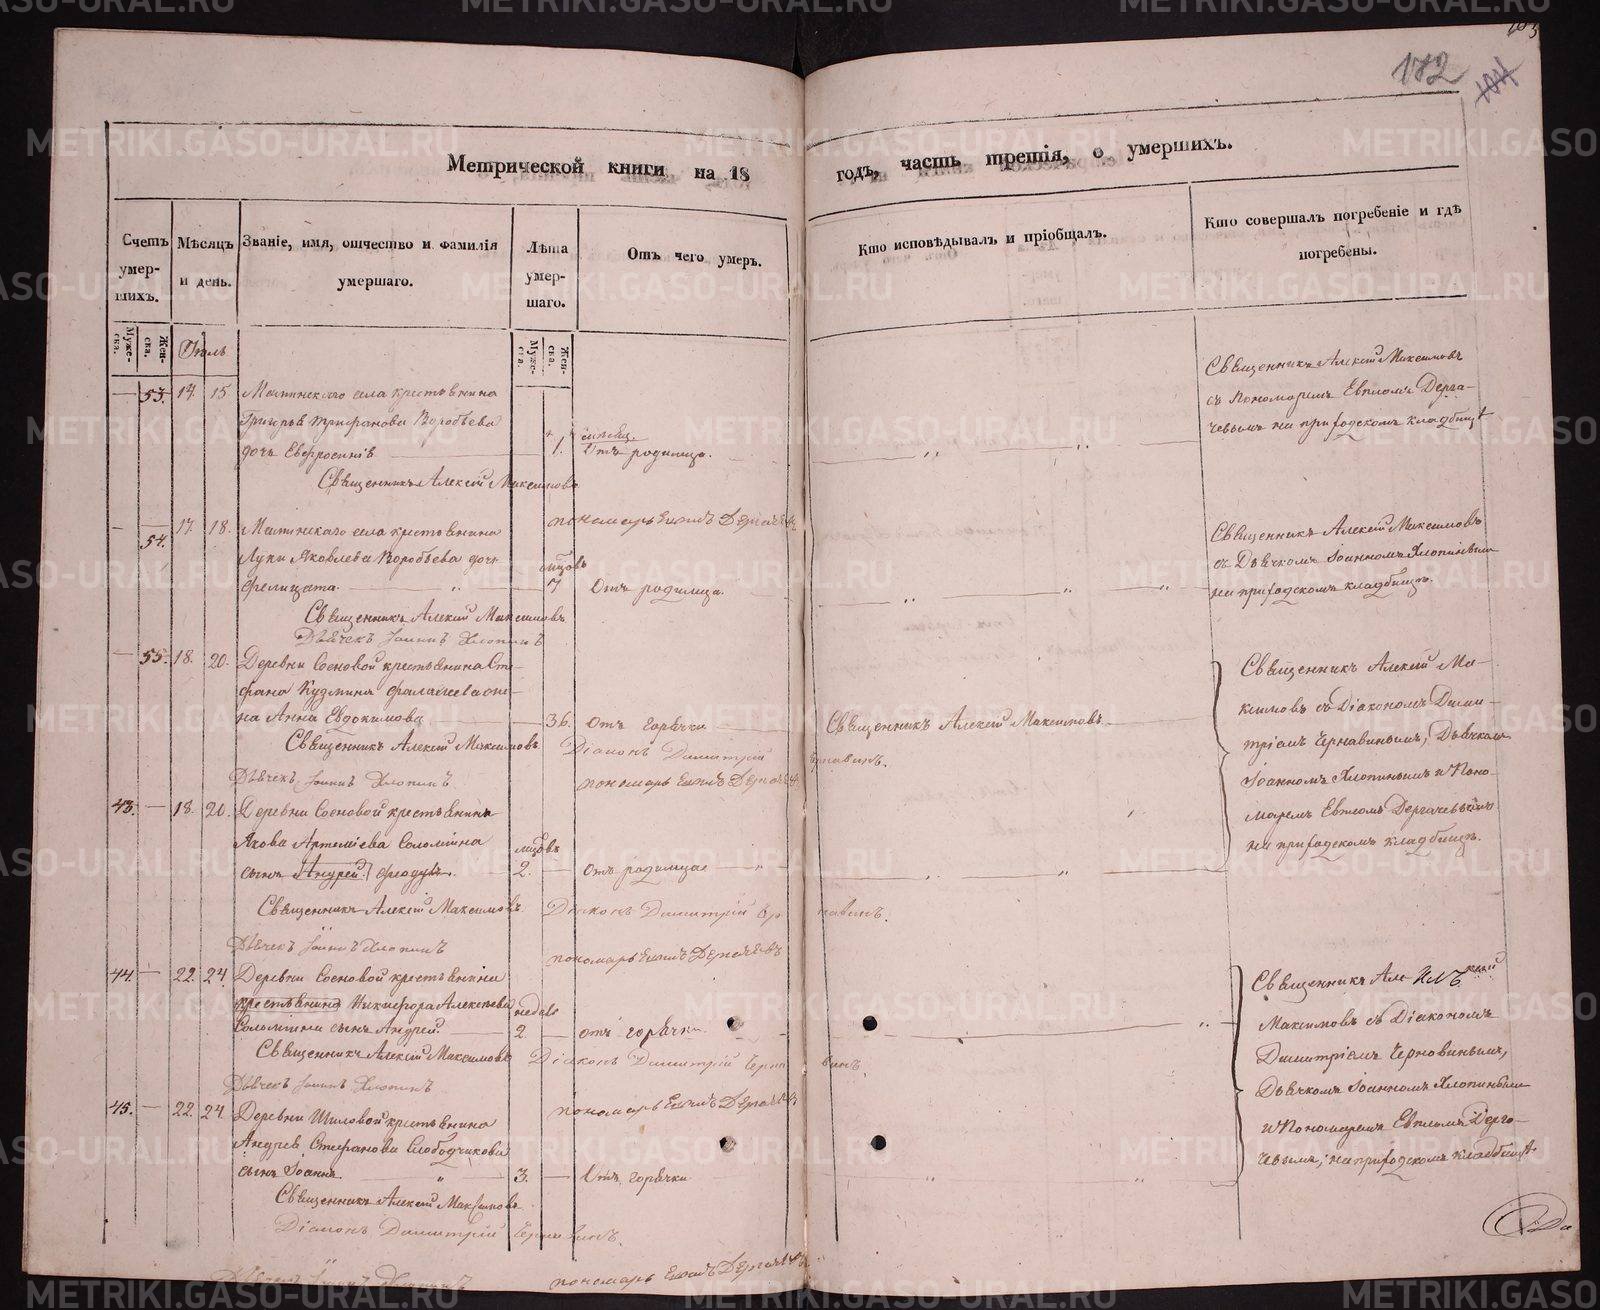 172
Метрической книги на 18 годъ, часть третія, о умершихъ.
Счетъ умер-шихъ.
Мѣсяцъ и день.
Званіе, имя, отчество и фамилія умершаго.
Лѣта умер-шаго.
Отъ чего умеръ.
Кто исповѣдывалъ и пріобщалъ.
Кто совершалъ погребеніе и гдѣ погребены.
Муже-ска.
Жен-ска.
Муже-ска.
Жен-ска.
Іюль
53. 14. 15 крестьянина
Григорья Трифанова Воробьева
дочь Евфросинія 1. Отъ родимца.
Священникъ Алексій Максимовъ
Священникъ Алексій Максимовъ
съ Пономаремъ Евпломъ Дерга-
чевымъ на приходскомъ кладбищѣ
пономарь Евплъ Дергачевъ
54. 17. 18. крестьянина
Луки Яковлева Воробьева дочь
Фелицата. 7 Отъ родимца.
Священникъ Алексій Максимовъ
Дьячекъ Іоаннъ Хлопинъ
Священникъ Алексій Максимовъ
съ Дьячкомъ Іоанномъ Хлопинымъ
на приходскомъ кладбищѣ.
55. 18. 20. Деревни Сосновой крестьянина Сте-
фана Кузмина
на Анна Евдокимова 36. Отъ горячки Священникъ Алексій Максимовъ
Священникъ Алексій Максимовъ Діаконъ Димитрій Чернавинъ.
Дьячекъ Іоаннъ Хлопинъ пономарь Евплъ Дергачевъ
Священникъ Алексій Ма-
ксимовъ съ Діакономъ Дими-
тріемъ Чернавинымъ, Дьячкомъ
Іоанномъ Хлопинымъ и Поно-
маремъ Евпломъ Дергачевымъ
на приходскомъ кладбищѣ.
43. 18. 20. Деревни Сосновой крестьянина
Якова Артеміева Соломіина
сынъ Андрей 2. Отъ родимца
Священникъ Алексій Максимовъ Діаконъ Димитрій Чернавинъ.
Дьячекъ Іоаннъ Хлопинъ пономарь Евплъ Дергачевъ
44. 22. 24. Деревни Сосновой крестьянина
крестьянина Никифора Алексѣева
Соломіина сынъ Андрей. 2 отъ горячки
Священникъ Алексій Максимовъ Діаконъ Димитрій Чернавинъ.
Дьячекъ Іоаннъ Хлопинъ
пономарь Евплъ Дергачевъ
Максимовъ съ Діакономъ
Димитріемъ Черновинымъ,
Дьячкомъ Іоанномъ Хлопинымъ
и Пономаремъ Евпломъ Дерга-
чевымъ, на приходскомъ кладбищѣ
45. 22. 24. Деревни Шиловой крестьянина
Андрея Стефанова Слободчикова
сынъ Іоаннъ. 3. Отъ горячки
Священникъ Алексій Максимовъ
Діаконъ Димитрій Чернавинъ.
Дьячекъ Іоаннъ Хлопинъ пономарь Евплъ Дергачевъ
METRIKI.GASO-URAL.RU